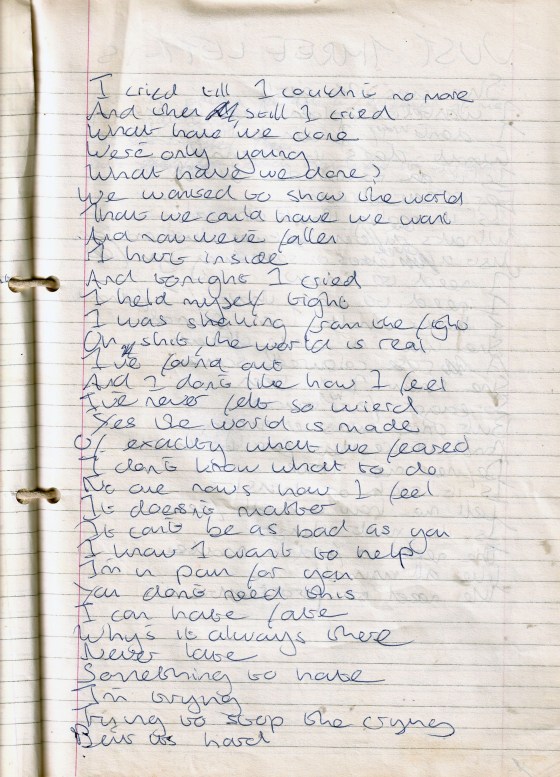 I cried till I couldn't no more
And then still I cried
What have we done
We're only young
What have we done?
We wanted to show the world
That we could have we want
And now we've fallen
I hurt inside
And tonight I cried
I held myself tight
I was shaking from the fight
Oh shit the world is real
I've found out
And I don't like how I feel
I've never felt so wierd
Yes the world is made
Of exactly what we feared
I don't know what to do
No one nows how I feel
It doesn't matter
It cant be as bad as you
I know I want to help
I'm in pain for you
You dont need this
I can hate fate
Why's it always there
Never late
Something to hate
I'm trying
Trying to stop the crying
But its hard